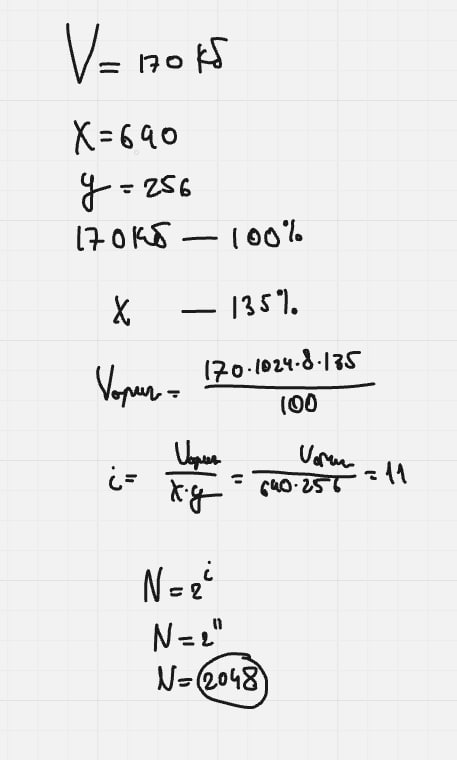 V = 170 Кб
X = 640
y = 256
170 Кб — 100%
X — 135%
Vориг = 170·1024·8·135 / 100
i = Vориг / x·y = Vориг / 640·256 = 11
N = 2^i
N = 2^11
N = 2048